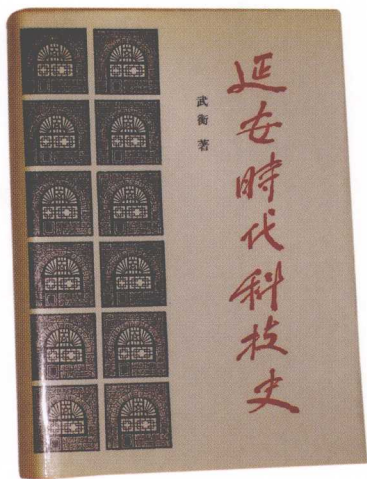 延安時代科技史
武衡 著